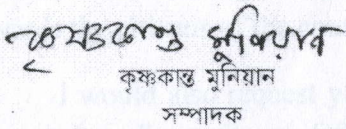 কৃষ্ণকান্ত মুনিয়ান
কৃষ্ণকান্ত মুনিয়ান
সম্পাদক